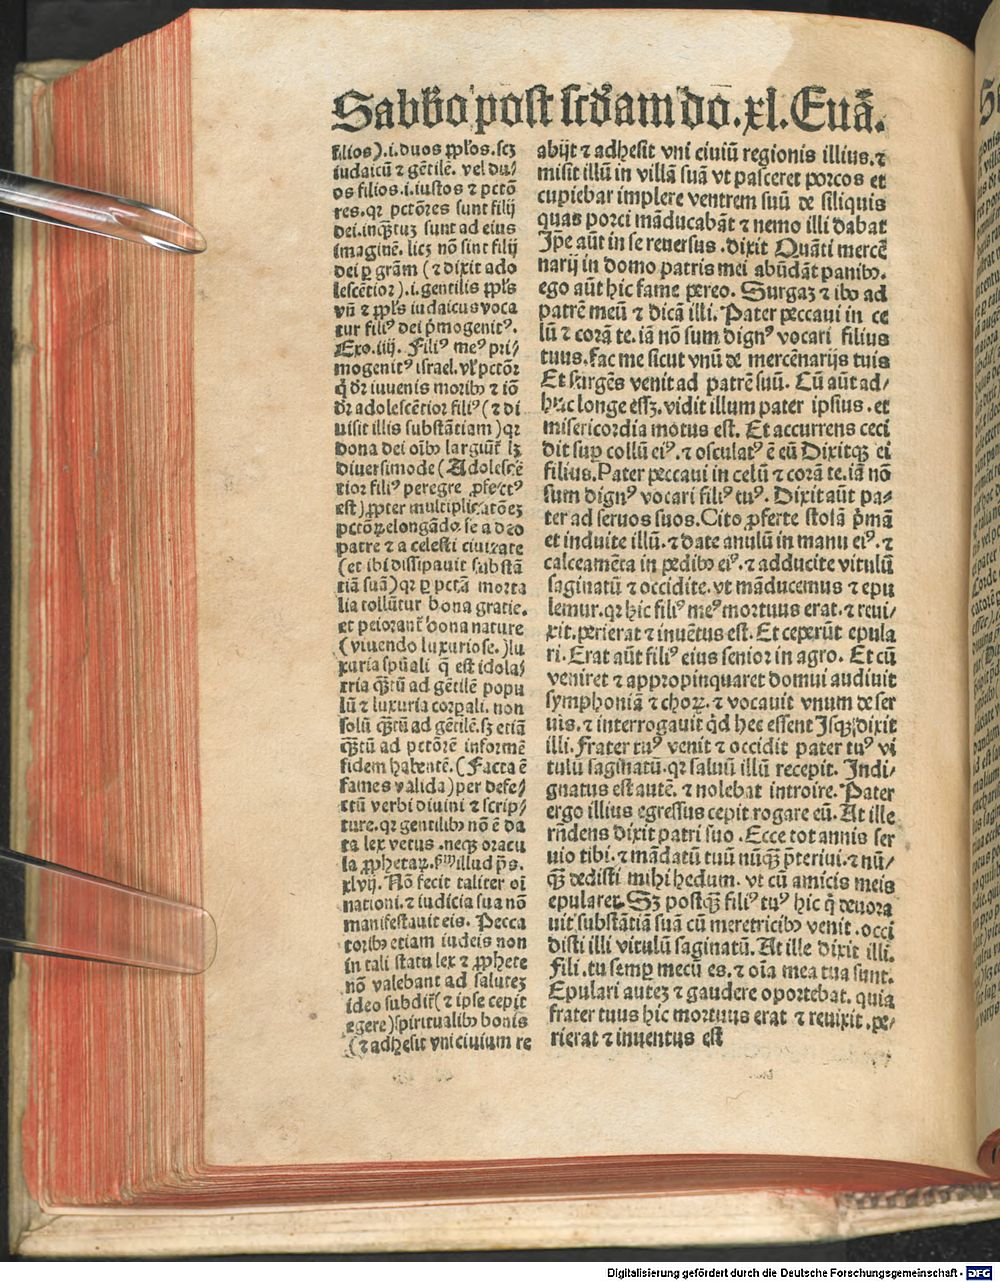 Sabbo post scdam do. xl. Euā.
filios).i.duos ppłos.scʒ
iudaicū ⁊ gētilē. vel du/
os filios.i.iustos ⁊ pctō
res.qr pctōres sunt filij
dei.inqᷓtuʒ sunt ad eius
imaginē. licʒ nō sint filij
dei ꝑ grām (⁊ dixit ado
lescētior).i.gentilis ppłs
vñ ⁊ ppłs iudaicus voca
tur filiꝰ dei pͥmogenitꝰ.
Exo.iiij. Filiꝰ meꝰ pri/
mogenitꝰ israel.vł pctōr
q̇ dr̄ iuuenis moribꝫ ⁊ iō
dr̄ adolescētior filiꝰ (⁊ di
uisit illis substātiam) qr
dona dei oībꝫ largiūt̄ lꝫ
diuersimode (Adolescē
tior filiꝰ peregre ꝓfectꝰ
est) ꝓpter multiplicatōeʒ
pctōꝝ elongādo se a deo
patre ⁊ a celesti ciuitate
(et ibi dissipauit substā
tiā suā) qr ꝑ pctā morta
lia tolluntur bona gratie.
et peiorant̄ bona nature
(viuendo luxuriose.) lu
xuria spūali q̄ est idola/
tria qᷓtū ad gētilē popu
lū ⁊ luxuria corpali. non
solū qᷓtū ad gētilē.sꝫ etiā
qᷓtū ad pctōrē informē
fidem habentē. (Facta ē
fames valida) per defe/
ctū verbi diuini ⁊ scrip/
ture.qr gentilibꝫ nō ē da
ta lex vetus .neqꝫ oracu
la ꝓphetaꝝ. illud ps̄.
xlvij. Nō fecit taliter oī
nationi.⁊ iudicia sua nō
manifestauit eis. Pecca
toribꝫ etiam iudeis non
in tali statu lex ⁊ ꝓphete
nō valebant ad saluteʒ
ideo subdit̄ (⁊ ipse cepit
egere) spiritualibꝫ bonis
(⁊ adhesit vni ciuium re
abijt ⁊ adhesit vni ciuiū regionis illius.⁊
misit illū in villā suā vt pasceret porcos et
cupiebat implere ventrem suū de siliquis
quas porci māducabāt ⁊ nemo illi dabat
Ipse aūt in se reuersus .dixit Quāti mercē
narij in domo patris mei abūdāt panibꝫ.
ego aūt hic fame pereo. Surgaʒ ⁊ ibo ad
patrē meū ⁊ dicā illi. Pater peccaui in ce
lū ⁊ corā te. iā nō sum dignꝰ vocari filius
tuus.fac me sicut vnū de mercēnarijs tuis
Et surgēs venit ad patrē suū. Cū aūt ad/
huc longe essꝫ.vidit illum pater ipsius.et
misericordia motus est. Et accurrens ceci
dit suꝑ collū eiꝰ.⁊ osculatꝰ ē eū Dixitqꝫ ei
filius.Pater peccaui in celū ⁊ corā te.iā nō
sum dignꝰ vocari filiꝰ tuꝰ. Dixit aūt pa/
ter ad seruos suos.Cito ꝓferte stolā pͥmā
et induite illū.⁊ date anulū in manu eiꝰ.⁊
calceamēta in pedibꝫ eiꝰ.⁊ adducite vitulū
saginatū ⁊ occidite.vt māducemus ⁊ epu
lemur.qr hic filiꝰ meꝰ mortuus erat.⁊ reui/
xit.perierat ⁊ inuētus est. Et ceperūt epula
ri. Erat aūt filiꝰ eius senior in agro. Et cū
veniret ⁊ appropinquaret domui audiuit
symphoniā ⁊ choꝝ.⁊ vocauit vnum de ser
uis.⁊ interrogauit qd hec essent Isqꝫ dixit
illi. Frater tuꝰ venit ⁊ occidit pater tuꝰ vi
tulū saginatū.qr saluū illū recepit. Indi/
gnatus est autē. ⁊ nolebat introire. Pater
ergo illius egressus cepit rogare eū. At ille
rn̄dens dixit patri suo . Ecce tot annis ser
uio tibi.⁊ mādatū tuū nūqᷓ pͥteriui.⁊ nū/
qᷓ dedisti mihi hedum. vt cū amicis meis
epularer. Sꝫ postqᷓ filiꝰ tuꝰ hic q̇ deuora
uit substātiā suā cū meretricibꝫ venit.occi
disti illi vitulū saginatū. At ille dixit illi.
Fili.tu semꝑ mecū es.⁊ oīa mea tua sunt.
Epulari auteʒ ⁊ gaudere oportebat. quia
frater tuus hic mortuus erat ⁊ reuixit.pe/
rierat ⁊ inuentus est
Digitalisierung gefördert durch die Deutsche Forschungsgemeinschaft - DFG